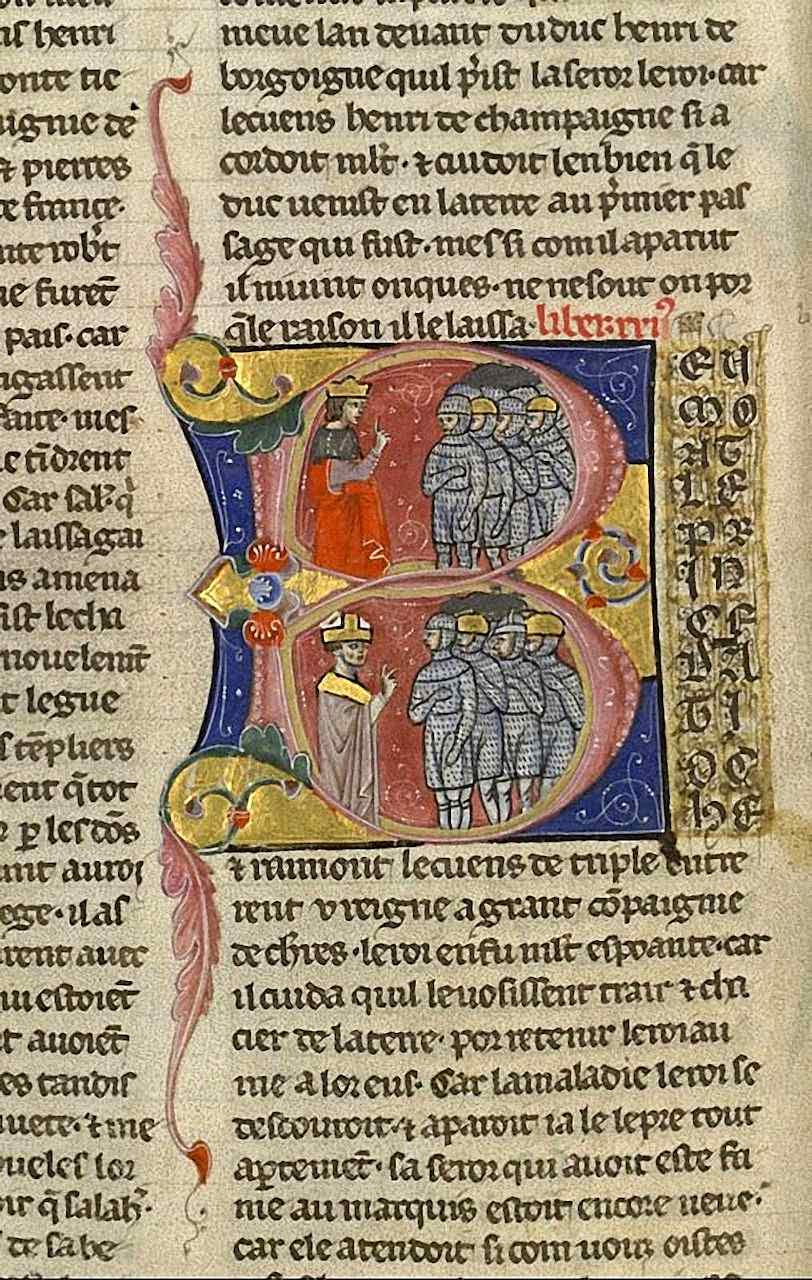 is henri
onte tie
aignie de
t pierres
ce france·
nte robt
ne furēt
pais· car
ngassent
faire· mes
le tīdrent
Car salh·q̄
e laissagai
is amena
fist lecha
nouelemt̄
t legue
s tēpliers
ient q̄tot
r p les cōs
unt auroi
ege· il as
rent auec
ui estoiēt
t auoiēt
es tandis
uete· ⁊ me
ueles lor
oir q̄ salah·
te sabe
nieue lan deuant du duc henri de
borgoigne quil prist la seror leroi· car
lecuens henri de champaigne si a
cordoit mlt̄· ⁊ cuidoit len bien q̄ le
duc uenist en laterre au p̄mier pas
sage qui fust· mes si com il aparut
il nuiunt onques· ne ne sout on por
q̄le raison il le laissa· liber
B
EU
MO
NT
LE
PR
IN
CE
DA
TI
OC
HE
⁊ raimont lecuens de triple entre
rent v reigne a grant cōpaignie
de chr̄es· leroi en fu mlt̄ espoante· car
il cuida quil leuosissent trair ⁊ cha
cier de laterre· por retenir leroiau
me a lor eus· Car lamaladie leroi se
descouroit· ⁊ aparoit ia le lepre tout
ap̄temēt· sa seror qui auoit este fa
me au marquis estoit encore ueue·
car ele atendoit si com uous oistes